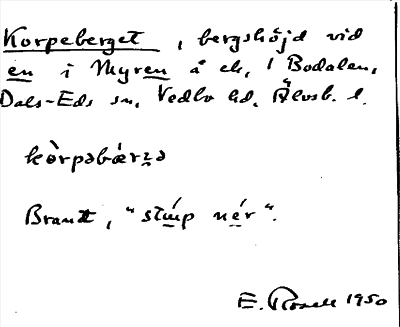 Korpeberget, bergshöjd vid
en i Myren å ek. 1 Bodalen,
Dals-Eds sn, Vedbo hd, Älvsb. l.
kòrpəbærʒə
Brant, "stu̱p né̱r".
E. Rosell 1950